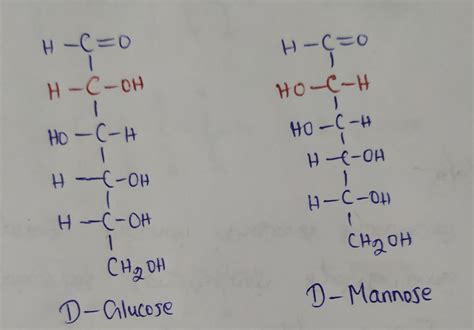 H-C=O
H-C-OH
HO-C-H
H-C-OH
H-C-OH
CH2OH
D-Glucose
H-C=O
HO-C-H
HO-C-H
H-C-OH
H-C-OH
CH2OH
D-Mannose